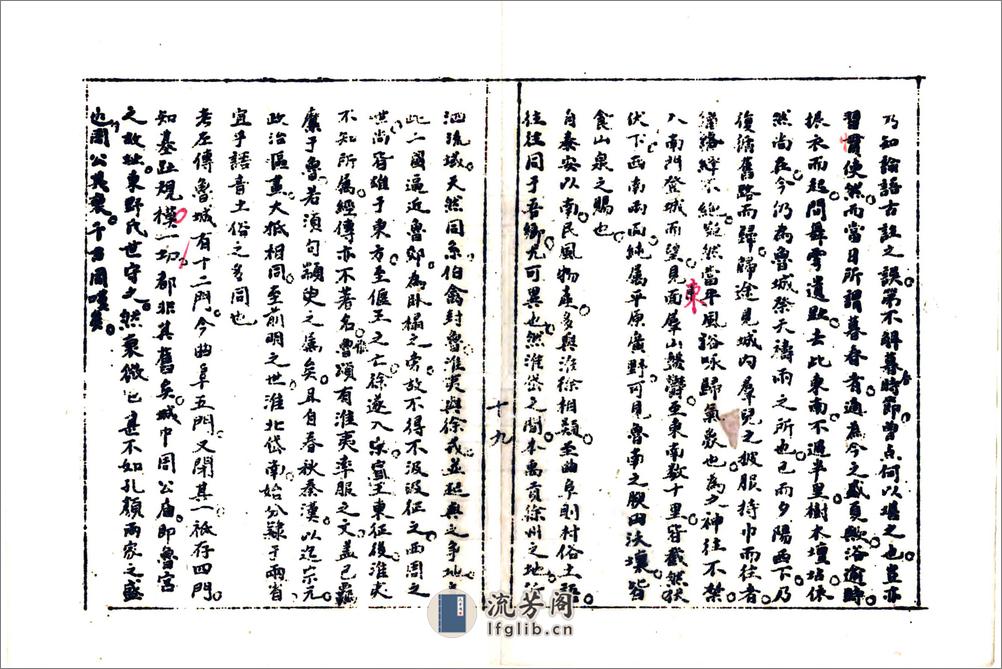 乃知論語古註之誤第不解暮春時節曾点何以場之也豈亦
習慣使然而當日所謂暮春者適為今之盛夏歟浴逾時
振衣而起問舞雩遺趾去此東南不過半里樹木壇坫依
然尚在今仍為魯城祭天禱雨之所也已而夕陽西下乃
復循舊路而歸歸途見城內羣兒之披服持巾而往者
繼絡繹不絕儼然當年風浴咏歸氣象也為之神往不禁
入南門登城而望見東面羣山盤鬱至東南数十里皆截然
伏下西南兩面純属平原廣野可見魯南之腴田沃壤皆
食山泉之賜也
自泰安以南民風物產多與淮徐相類至曲阜則村俗土語
往往同于吾鄉尤可異也然淮岱之間本禹貢徐州之地
泗流域天然同系伯禽封魯淮夷與徐戎並起與之爭地
此二國逼近魯郊為臥榻之旁故不得不汲汲征之西周之
世尚皆雄于東方至偃王之亡徐遂入宗宣王東征後淮夷
不知所属經傳亦不著名魯頌有淮夷率服之文蓋已
屬于魯若湏句顓臾之為矣且自春秋秦漢以迄宗元
政治區畫大抵相同至前明之世淮北岱南始分隸于兩省
宜乎語音土俗之多同也
考左傳魯城有十二門今曲阜五門又閉其一祇存四門
知基趾規模一切都非其舊矣城中周公庙即魯宮
之故址東野氏世守之然衰微已甚不如孔顏兩家之盛
也周公其衰千古同嘆矣
十九
東
流芳阁
lfglib.cn